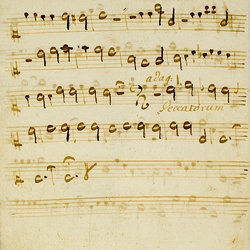 adag.
Peccatorum